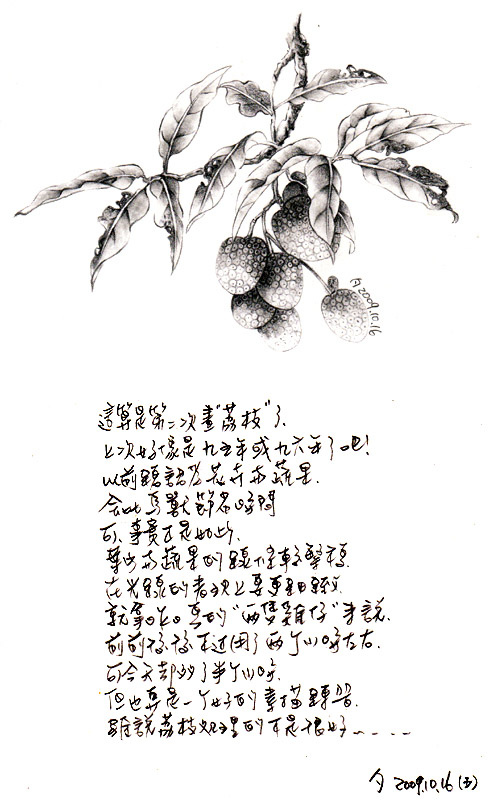 2009.10.16
這算是第二次畫“荔枝”了.
上次好像是九五年或九六年了吧!
以前總認為花卉和蔬果.
會比鳥獸節省時間
可.事實不是如此.
花卉和蔬果的線條較繁複
在光線的層次上要更細緻.
就拿昨日畫的“兩隻雞仔”來說.
前前後後不過用了兩個小時左右.
可今天卻多了半個小時.
但也算是一個好的素描練習.
雖說荔枝處理的不是很好....
2009.10.16(五)